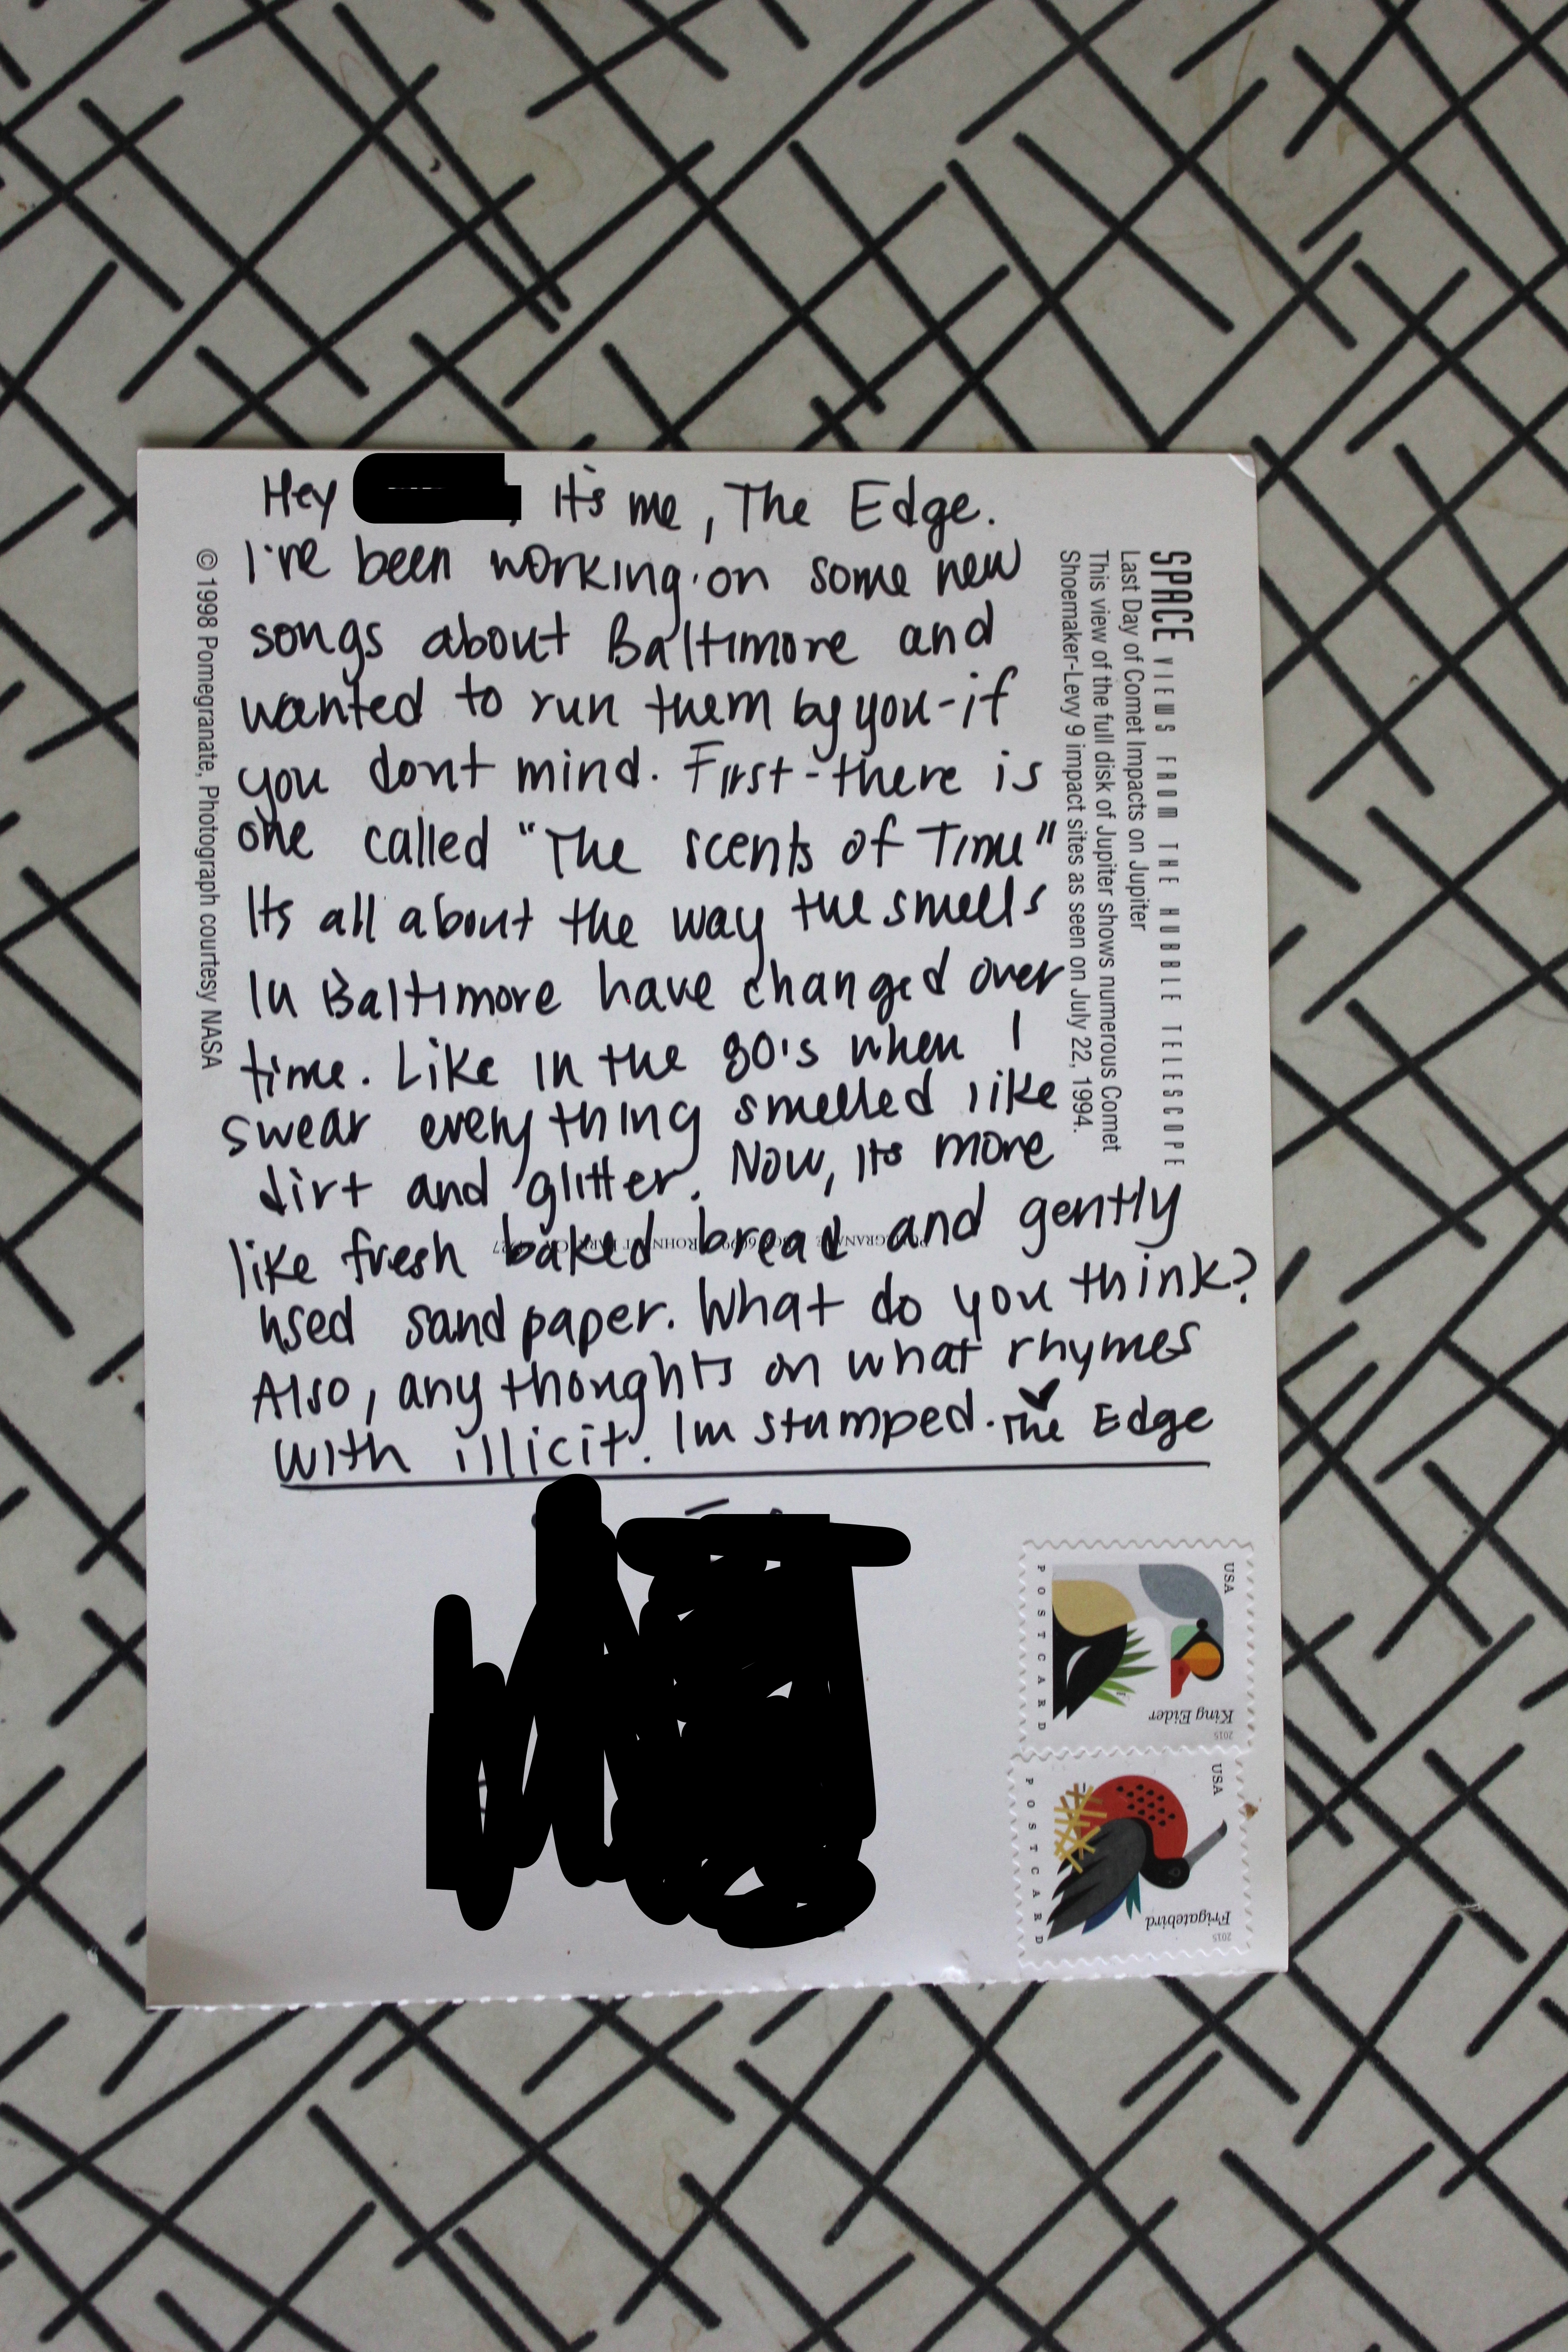 Hey , it's me, The Edge.
I've been working on some new
songs about Baltimore and
wanted to run them by you-if
you dont mind. First-there is
one called "The scents of Time"
Its all about the way the smells
In Baltimore have changed over
time. Like in the 80's when I
swear everything smelled like
dirt and glitter. Now, its more
like fresh baked bread and gently
used sand paper. What do you think?
Also, any thoughts on what rhymes
with illicit. Im stumped. The Edge
SPACE VIEWS FROM THE HUBBLE TELESCOPE
Last Day of Comet Impacts on Jupiter
This view of the full disk of Jupiter shows numerous Comet
Shoemaker-Levy 9 impact sites as seen on July 22, 1994.
© 1998 Pomegranate, Photograph courtesy NASA
USA
POSTCARD
King Eider
2015
USA
POSTCARD
Frigatebird
2015